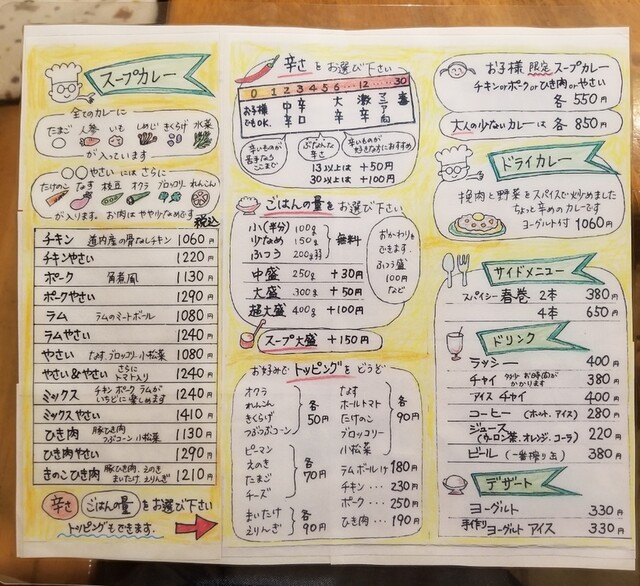 スープカレー
全てのカレーに
たまご 人参 いも しめじ きくらげ 水菜
が入っています
○○やさい には さらに
たけのこ なす 枝豆 オクラ ブロッコリー れんこん
が入ります。お肉はやや少なめです
税込
チキン 道内産の骨なしチキン 1060円
チキンやさい 1220円
ポーク 角煮風 1130円
ポークやさい 1290円
ラム ラムのミートボール 1080円
ラムやさい 1240円
やさい なす、ブロッコリー 小松菜 1080円
やさい&やさい さらに トマト入り 1240円
ミックス チキン ポーク ラムが いちどに楽しめます 1240円
ミックスやさい 1410円
ひき肉 豚ひき肉 つぶコーン 小松菜 1130円
ひき肉やさい 1290円
きのこひき肉 豚ひき肉、えのき まいたけ、えりんぎ 1210円
辛さ ごはんの量をお選び下さい
トッピングもできます。
辛さをお選び下さい
0 1 2 3 4 5 6 … 12 … 30
お子様でもOK.
中辛 辛口 大辛 激辛 マニア向 毒
辛いものが苦手ならここまで
ぶなんな辛さ
辛いものが好きな方におすすめ
13以上は +50円
30以上は +100円
ごはんの量をお選び下さい
小(半分) 100g
少なめ 150g
ふつう 200g弱
無料
中盛 250g +30円
大盛 300g +50円
超大盛 400g +100円
おかわりもできます。
ふつう盛
100円
など
スープ大盛 +150円
お好みでトッピングをどうぞ
オクラ
れんこん
きくらげ
つぶつぶコーン
各50円
ピーマン
えのき
たまご
チーズ
各70円
まいたけ
えりんぎ
各90円
なす
ホールトマト
たけのこ
ブロッコリー
小松菜
各90円
ラムボール1ケ 180円
チキン … 230円
ポーク … 250円
ひき肉 … 190円
お子様限定スープカレー
チキンorポークorひき肉orやさい
各550円
大人の少ないカレーは 各850円
ドライカレー
挽肉と野菜をスパイスで炒めました
ちょっと辛めのカレーです
ヨーグルト付 1060円
サイドメニュー
スパイシー春巻 2本 380円
4本 650円
ドリンク
ラッシー 400円
チャイ お時間がかかります 380円
アイスチャイ 400円
コーヒー (ホット、アイス) 280円
ジュース
(ウーロン茶、オレンジ、コーラ) 220円
ビール (一番搾り缶) 380円
デザート
ヨーグルト 330円
手作りヨーグルトアイス 330円